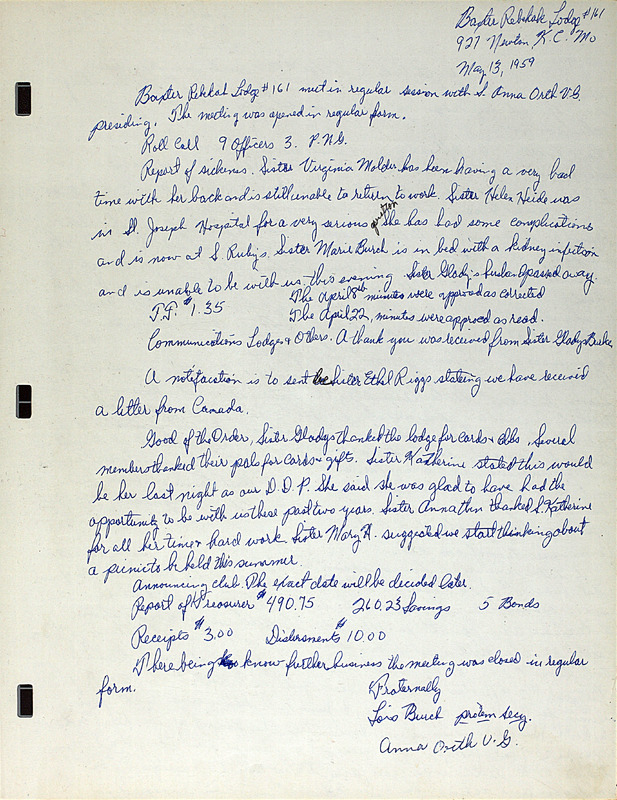 Baxter Rebekah Lodge #161
927 Newton, K.C. Mo
May 13, 1959
Baxter Rekkah Lodge #161 met in regular session with S. Anna Orth V.G.
presiding. The meeting was opened in regular form.
Roll Call 9 Officers 3. P.N.G.
Report of sickenes. Sister Virginia Molder has been having a very bad
time with her back and is still unable to return to work. Sister Helen Heide was
in St. Joseph Hospital for a very serious operation She has had some complications
and is now at S. Ruby's. Sister Marie Burch is in bed with a kidney infection
and is unable to be with us, this evening Sister Glady's husband passed away.
The April 8th minutes were approved as corrected
T.F. $1.35 The April 22, minutes were approved as read.
Communications Lodges & Others. A thank you was received from Sister Gladys
A notifaction is to sent Sister Ethel Riggs stateing we have received
a letter from Canada.
Good of the Order, Sister Gladys thanked the lodge for cards & . Several
members thanked their pals for cards & gifts. Sister Katherine stated this would
be her last night as our D.D.P. She said she was glad to have had the
opportunity to be with us these past two years. Sister Anna thanked S. Katherine
for all her time & hard work Sister Mary H. suggested we start thinking about
a picnic to be held this summer.
Announcing club. The exact date will be decided later.
Report of Treasurer $490.75 260.23 Savings 5 Bonds
Receipts $3.00 Disbersments $10.00
There being know further business the meeting was closed in regular
form.
Fraternally
Lois Burch protem secy.
Anna Orth V.G.